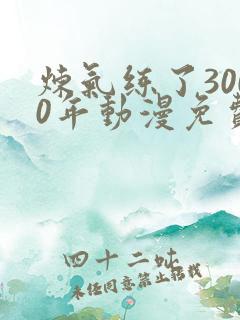 煉氣练了300
0年動漫免費
四十二吆
未经同意禁止转载